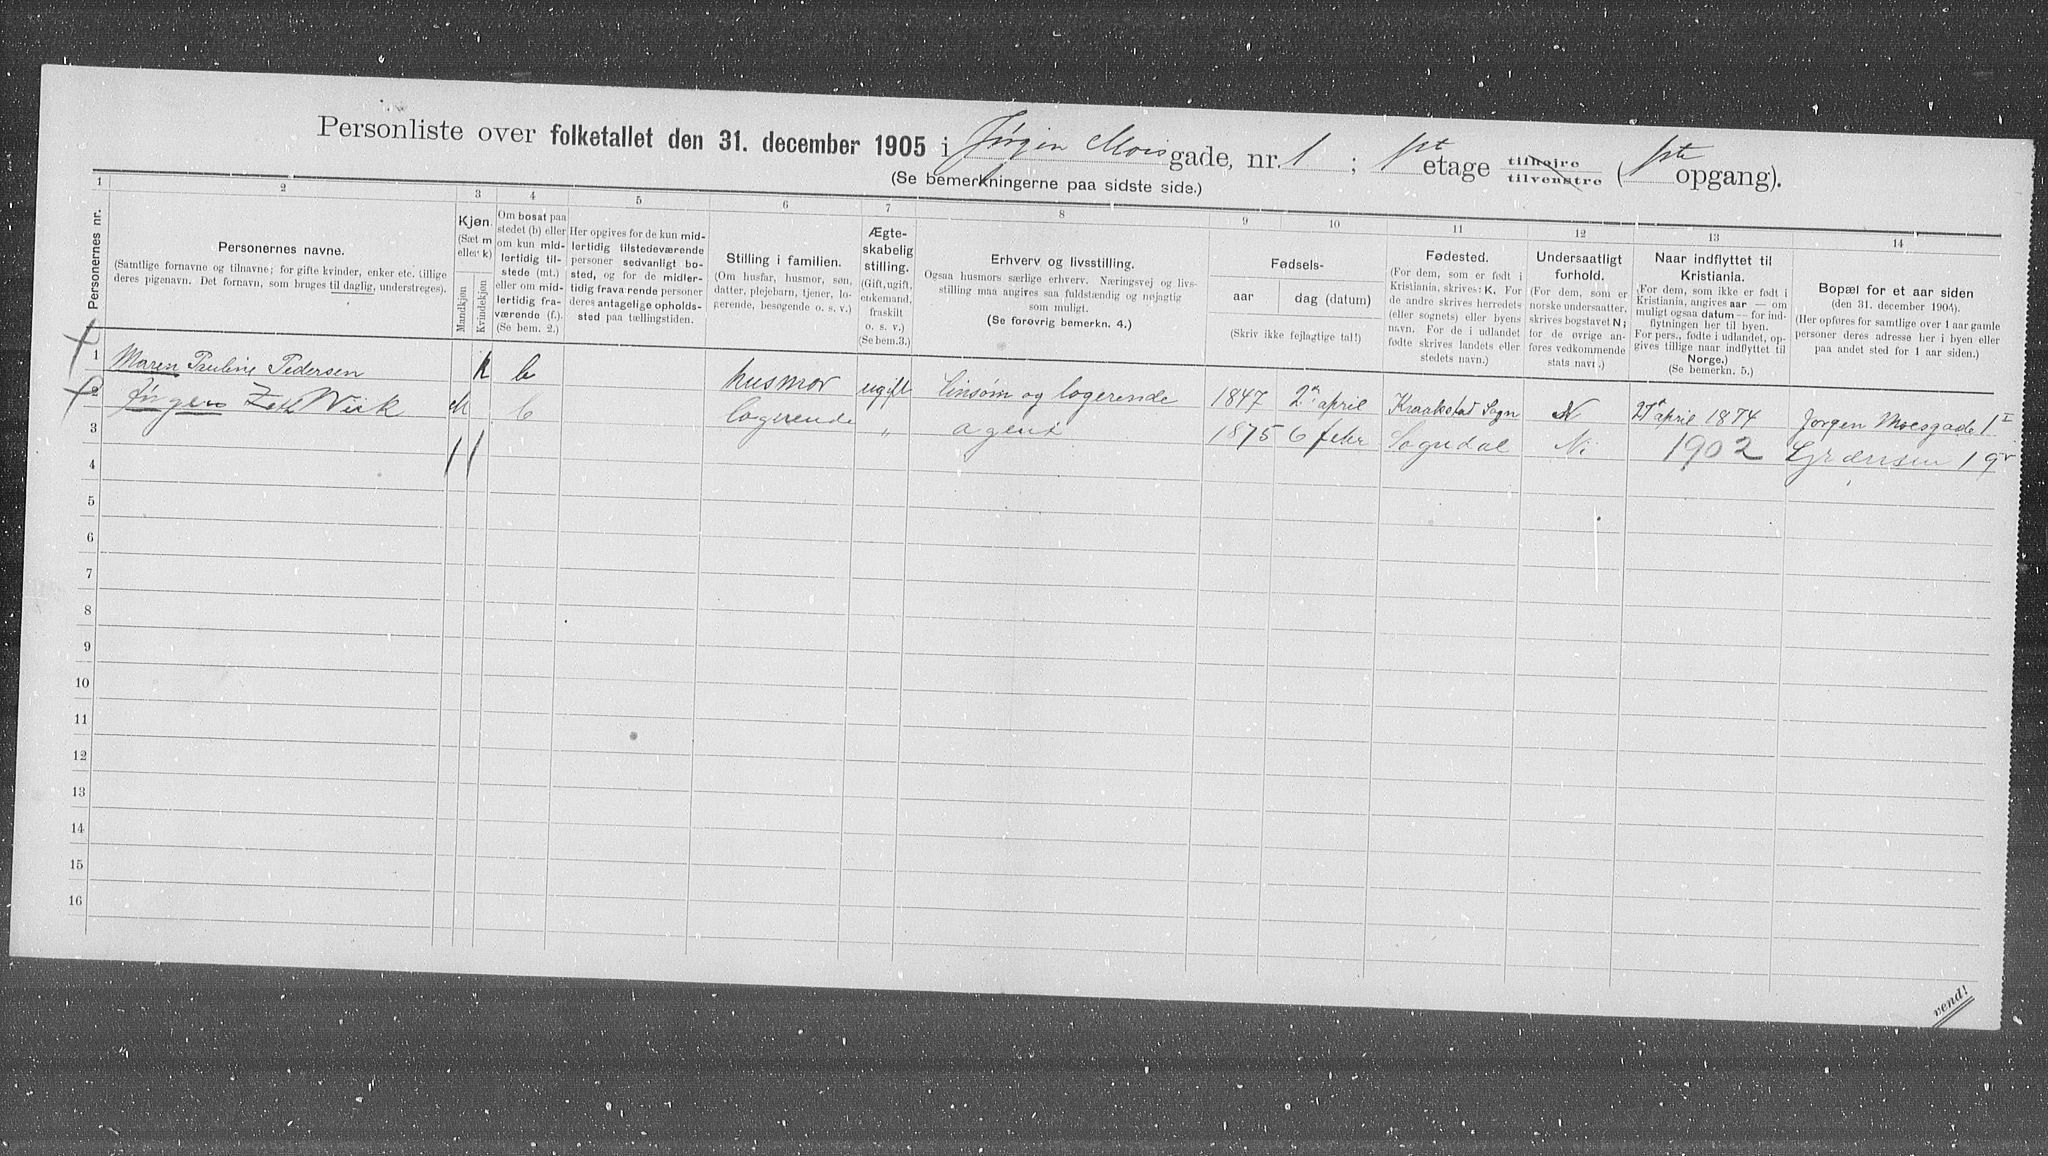 Personliste over folketallet den 31. december 1905 i Jørgen Moisgade, nr. 1 ; 1ste etage tilhøjre tilvenstre (1ste opgang).
(Se bemerkningerne paa sidste side.)
1 2 3 4 5 6 7 8 9 10 11 12 13 14
Personernes nr.
Personernes navne.
(Samtlige fornavne og tilnavne; for gifte kvinder, enker etc. tillige deres pigenavn. Det fornavn, som bruges til daglig, understreges).
Kjøn. (Sæt m eller k)
Mandkjøn Kvindekjøn
Om bosat paa stedet (b) eller om kun midlertidig tilstede (mt.) eller om midlertidig fraværende (f.). (Se bem. 2.)
Her opgives for de kun midlertidig tilstedeværende personer sedvanligt bosted, og for de midlertidig fraværende personer deres antagelige opholdssted paa tællingstiden.
Stilling i familien.
(Om husfar, husmor, søn, datter, plejebarn, tjener, logerende, besøgende o. s. v.)
Ægteskabelig stilling.
(Gift, ugift, enkemand, fraskilt o. s. v.) (Se bem. 3.)
Erhverv og livsstilling.
Ogsaa husmors særlige erhverv. Næringsvej og livsstilling maa angives saa fuldstændig og nøjagtig som muligt.
(Se forøvrig bemerkn. 4.)
Fødsels-
aar dag (datum)
(Skriv ikke fejlagtige tal!)
Fødested.
(For dem, som er født i Kristiania, skrives: K. For de andre skrives herredets (eller sognets) eller byens navn. For de i udlandet fødte skrives landets eller stedets navn.)
Undersaatligt forhold.
(For dem, som er norske undersaatter, skrives bogstavet N; for de øvrige anføres vedkommende stats navn.)
Naar indflyttet til Kristiania.
(For dem, som ikke er født i Kristiania, angives aar — om muligt ogsaa datum — for indflytningen her til byen. For pers., fødte i udlandet, opgives tillige naar indflyttet til Norge.)
(Se bemerkn. 5.)
Bopæl for et aar siden
(den 31. december 1904).
(Her opføres for samtlige over 1 aar gamle personer deres adresse her i byen eller paa andet sted for 1 aar siden.)
1 Maren Pauline Pedersen k b husmor ugift linsøm og logerende 1847 2n april Kraakstad Sogn N 27 april 1874 Jørgen Moesgade 1 I
2 Jørgen Wiik M b logerende " agent 1875 6 febr Sogndal N 1902 Grænsen 19
3
4
5
6
7
8
9
10
11
12
13
14
15
16
vend!